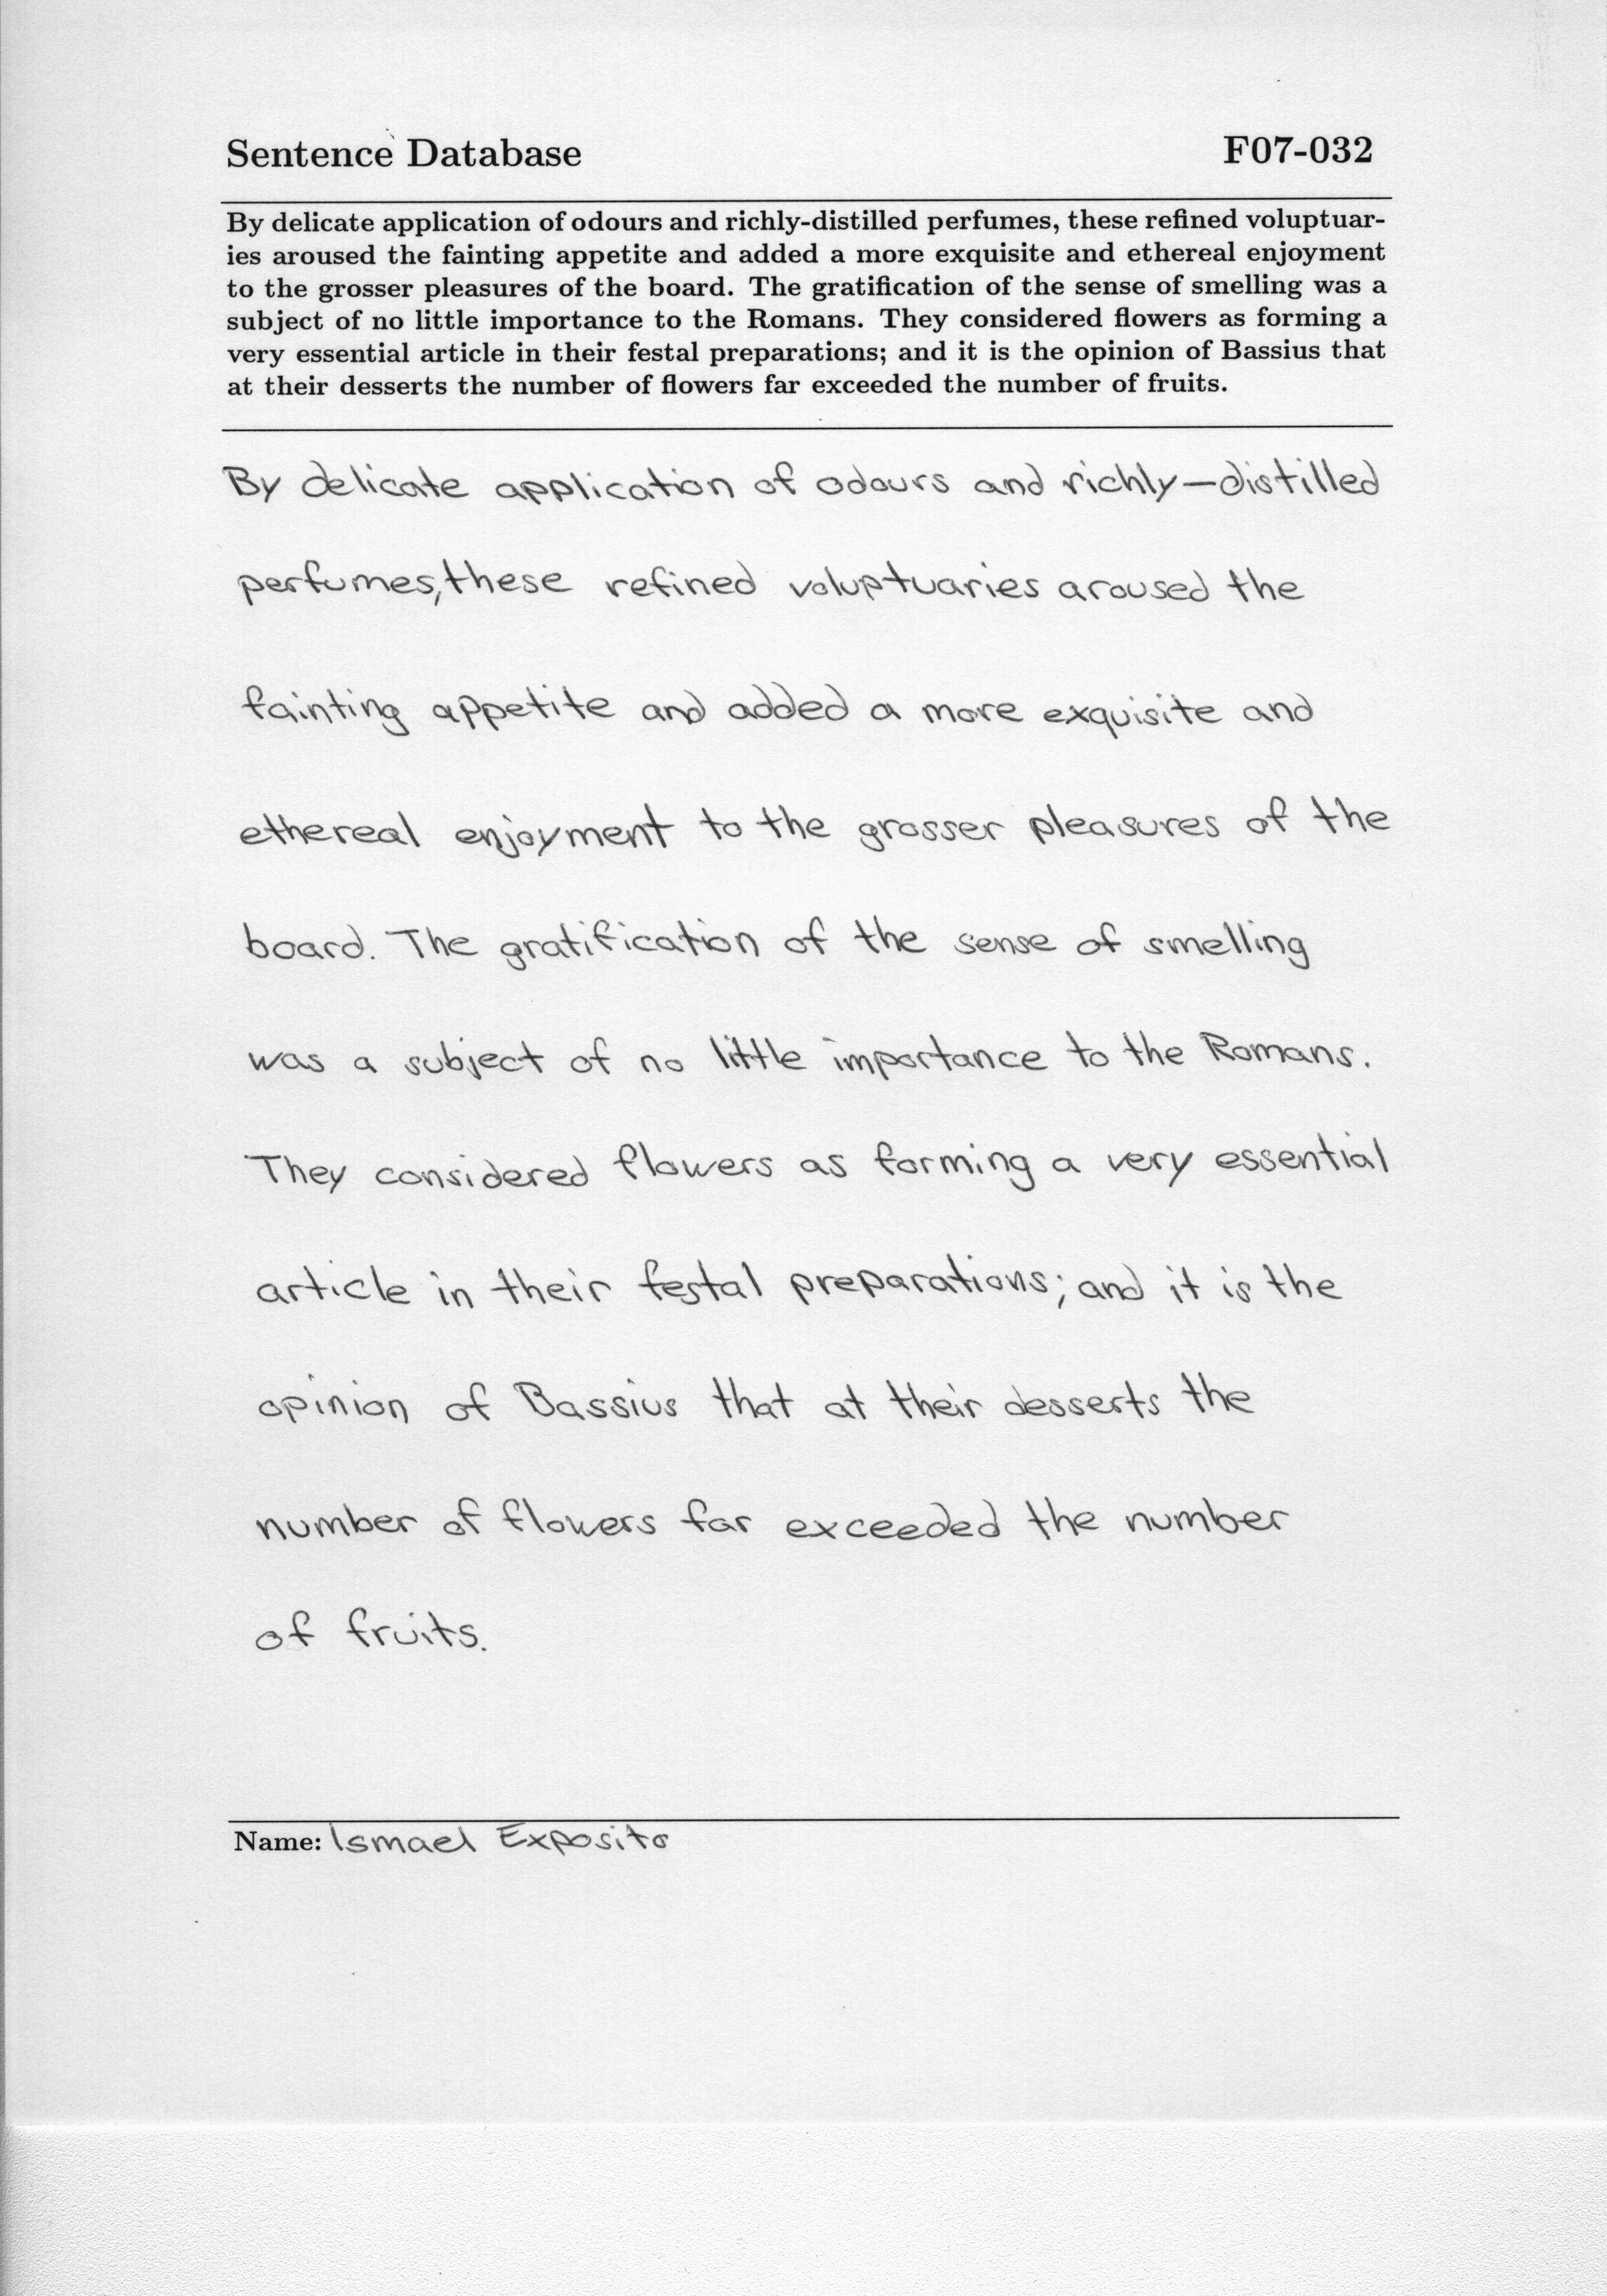 Sentence Database F07-032
By delicate application of odours and richly-distilled perfumes, these refined voluptuar-
ies aroused the fainting appetite and added a more exquisite and ethereal enjoyment
to the grosser pleasures of the board. The gratification of the sense of smelling was a
subject of no little importance to the Romans. They considered flowers as forming a
very essential article in their festal preparations; and it is the opinion of Bassius that
at their desserts the number of flowers far exceeded the number of fruits.
By delicate application of odours and richly-distilled
perfumes, these refined voluptuaries aroused the
fainting appetite and added a more exquisite and
ethereal enjoyment to the grosser pleasures of the
board. The gratification of the sense of smelling
was a subject of no little importance to the Romans.
They considered flowers as forming a very essential
article in their festal preparations; and it is the
opinion of Bassius that at their desserts the
number of flowers far exceeded the number
of fruits.
Name: Ismael Exposito